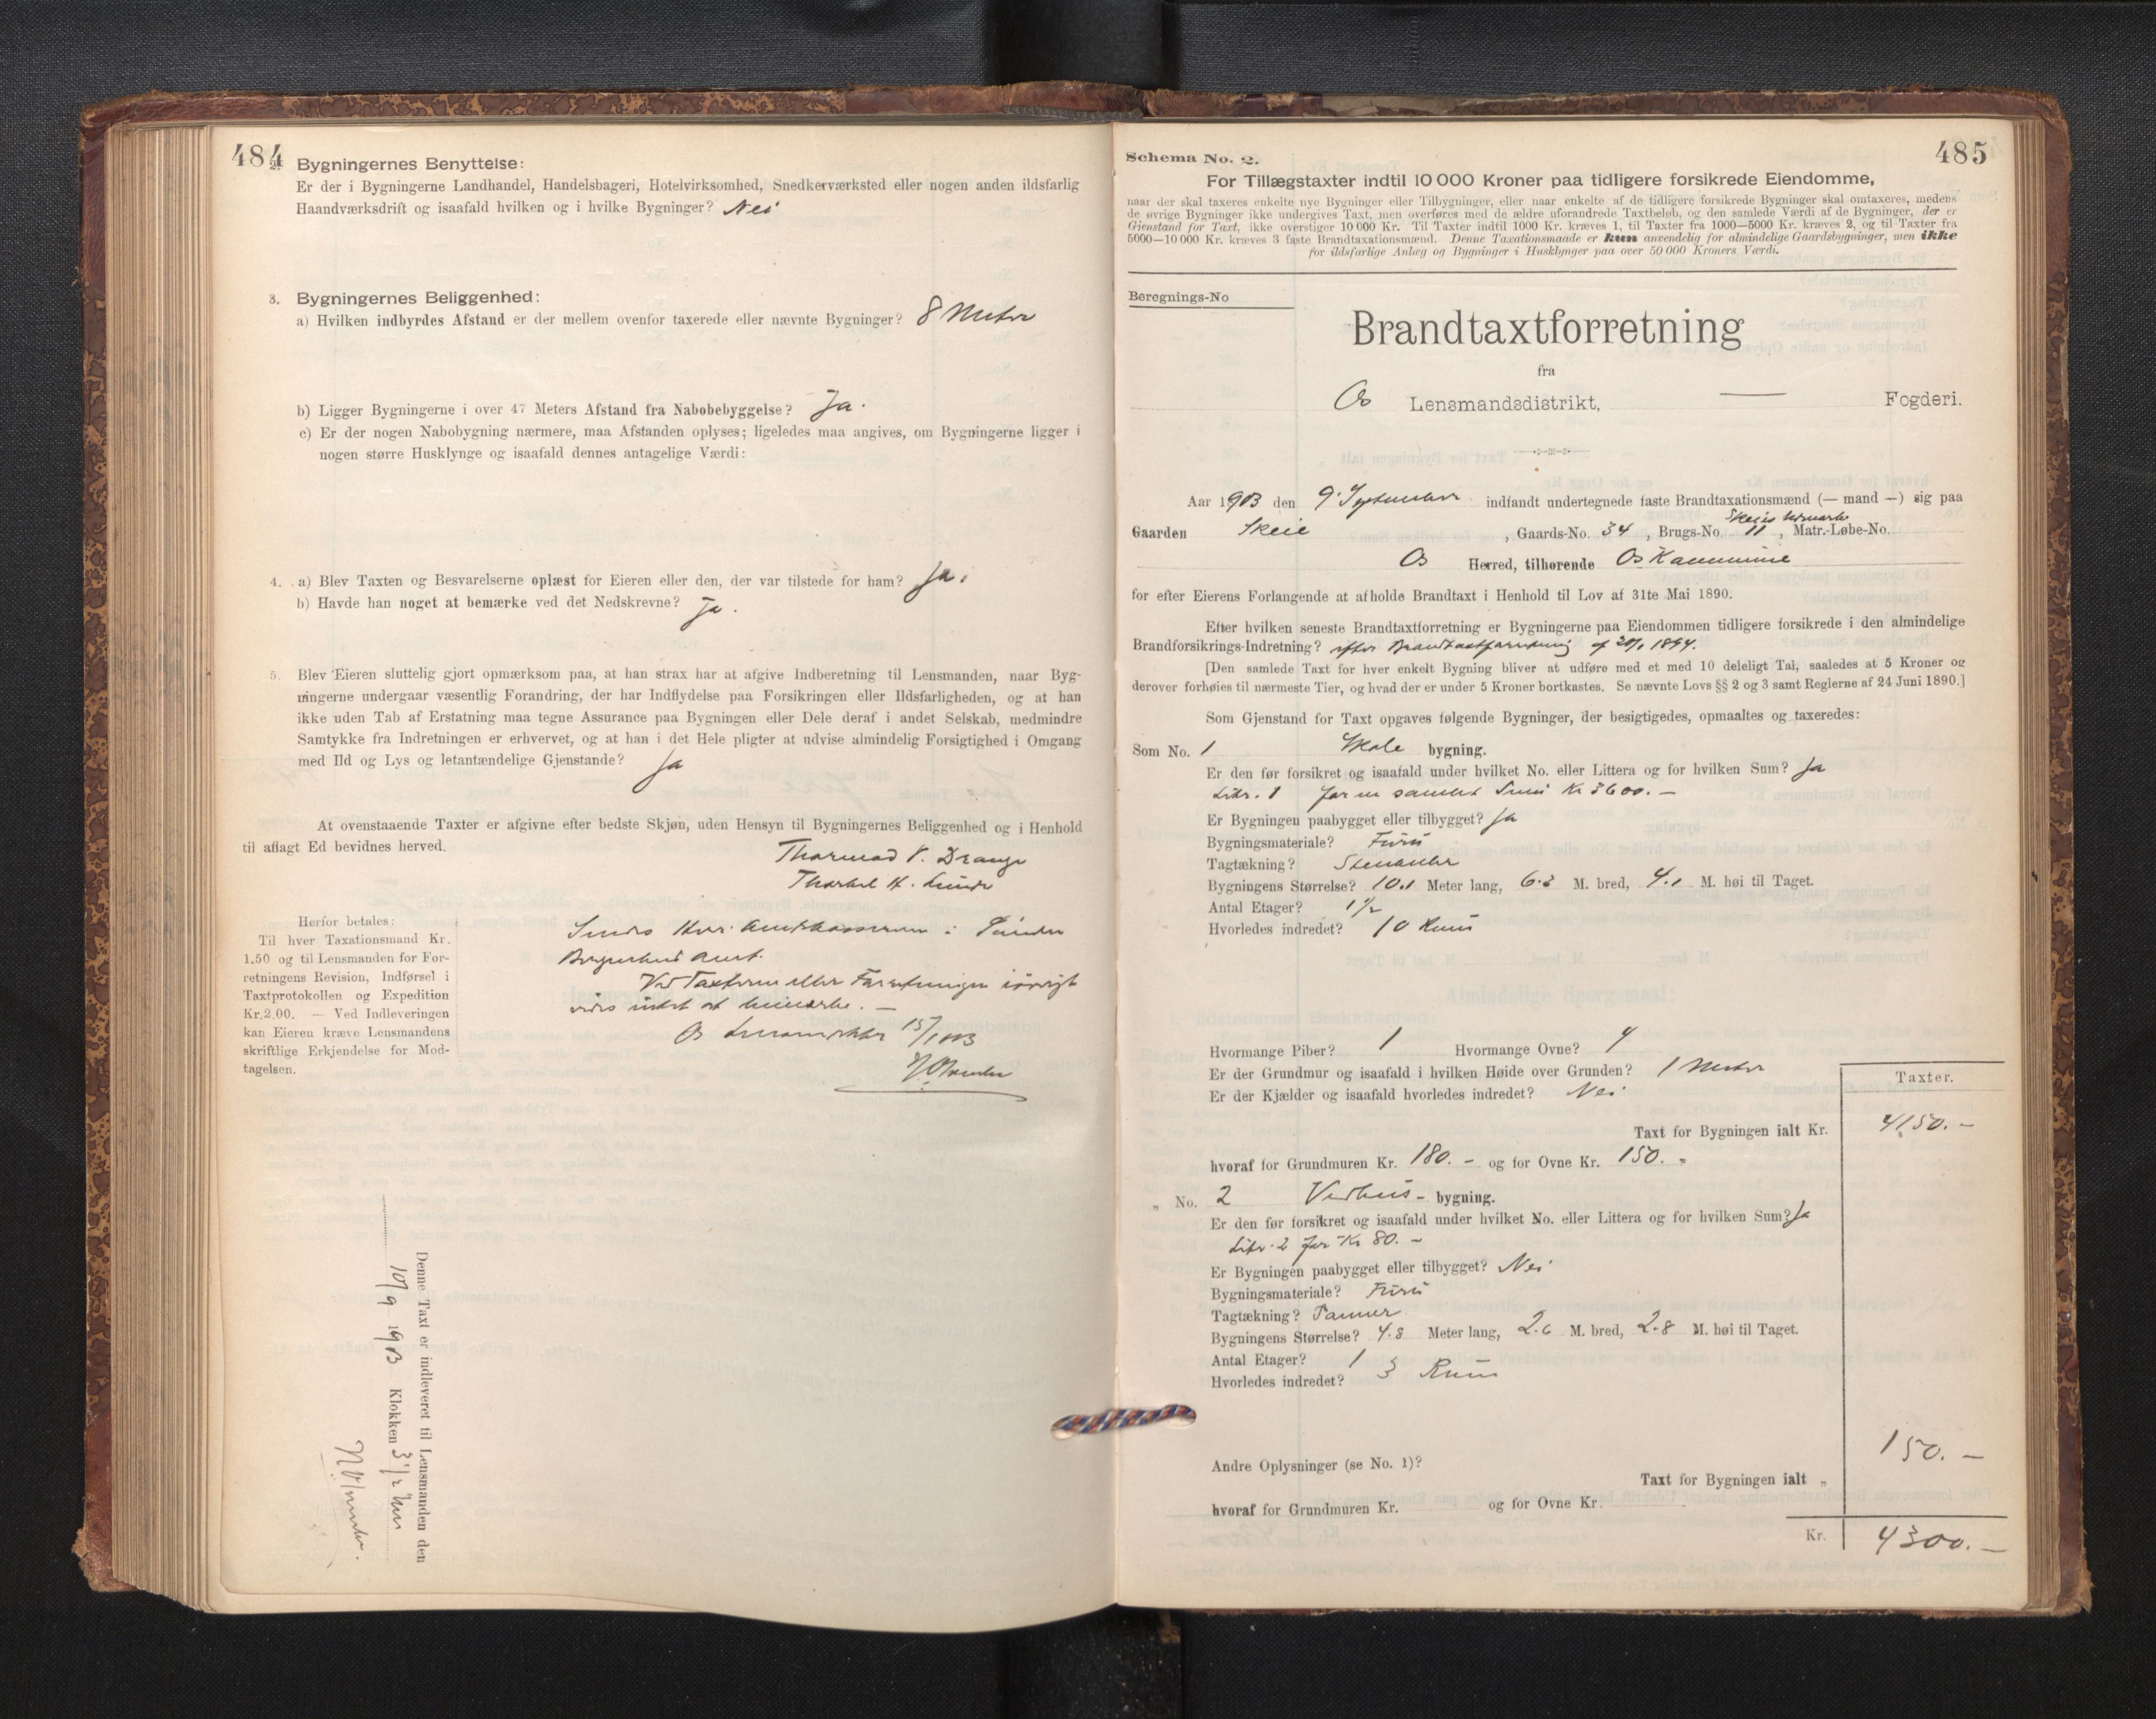 484
2. Bygningernes Benyttelse:
Er der i Bygningerne Landhandel, Handelsbageri, Hotelvirksomhed, Snedkerværksted eller nogen anden ildsfarlig
Haandværksdrift og isaafald hvilken og i hvilke Bygninger? Nei
3. Bygningernes Beliggenhed:
a) Hvilken indbyrdes Afstand er der mellem ovenfor taxerede eller nævnte Bygninger? 8 Meter
b) Ligger Bygningerne i over 47 Meters Afstand fra Nabobebyggelse? Ja.
c) Er der nogen Nabobygning nærmere, maa Afstanden oplyses; ligeledes maa angives, om Bygningerne ligger i
nogen større Husklynge og isaafald dennes antagelige Værdi:
4. a) Blev Taxten og Besvarelserne oplæst for Eieren eller den, der var tilstede for ham? Ja.
b) Havde han noget at bemærke ved det Nedskrevne? Ja.
5. Blev Eieren sluttelig gjort opmærksom paa, at han strax har at afgive Indberetning til Lensmanden, naar Byg-
ningerne undergaar væsentlig Forandring, der har Indflydelse paa Forsikringen eller Ildsfarligheden, og at han
ikke uden Tab af Erstatning maa tegne Assurance paa Bygningen eller Dele deraf i andet Selskab, medmindre
Samtykke fra Indretningen er erhvervet, og at han i det Hele pligter at udvise almindelig Forsigtighed i Omgang
med Ild og Lys og letantændelige Gjenstande? Ja
At ovenstaaende Taxter er afgivne efter bedste Skjøn, uden Hensyn til Bygningernes Beliggenhed og i Henhold
til aflagt Ed bevidnes herved.
Thormod V. Drange
Thorkel H. Lunde
Herfor betales:
Til hver Taxationsmand Kr.
1.50 og til Lensmanden for For-
retningens Revision, Indførsel i
Taxtprotokollen og Expedition
Kr.2.00. — Ved Indleveringen
kan Eieren kræve Lensmandens
skriftlige Erkjendelse for Mod-
tagelsen.
Sendes Hrr. Amtskassereren i Søndre
Bergenhus Amt.
Ved Taxterne eller Forretningen iøvrigt
vides intet at bemærke. —
Os
Denne Taxt er indleveret til Lensmanden den
10/9 1903 Klokken 3 1/2
485
Schema No. 2.
For Tillægstaxter indtil 10 000 Kroner paa tidligere forsikrede Eiendomme,
naar der skal taxeres enkelte nye Bygninger eller Tilbygninger, eller naar enkelte af de tidligere forsikrede Bygninger skal omtaxeres, medens
de øvrige Bygninger ikke undergives Taxt, men overføres med de ældre uforandrede Taxtbeløb, og den samlede Værdi af de Bygninger, der er
Gjenstand for Taxt, ikke overstiger 10 000 Kr. Til Taxter indtil 1000 Kr. kræves 1, til Taxter fra 1000—5000 Kr. kræves 2, og til Taxter fra
5000—10 000 Kr. kræves 3 faste Brandtaxationsmænd. Denne Taxationsmaade er kun anvendelig for almindelige Gaardsbygninger, men ikke
for ildsfarlige Anlæg og Bygninger i Husklynger paa over 50 000 Kroners Værdi.
Beregnings-No
Brandtaxtforretning
fra
Os Lensmandsdistrikt, — Fogderi.
Aar 1903 den 9' September indfandt undertegnede faste Brandtaxationsmænd (— mand —) sig paa
Gaarden Skeie, Gaards-No. 34, Brugs-No. 11, Matr.-Løbe-No.
Os Herred, tilhørende Os Kommune
for efter Eierens Forlangende at afholde Brandtaxt i Henhold til Lov af 31te Mai 1890.
Efter hvilken seneste Brandtaxtforretning er Bygningerne paa Eiendommen tidligere forsikrede i den almindelige
Brandforsikrings-Indretning? efter Brandtaxtforretning af 1894.
[Den samlede Taxt for hver enkelt Bygning bliver at udføre med et med 10 deleligt Tal, saaledes at 5 Kroner og
derover forhøies til nærmeste Tier, og hvad der er under 5 Kroner bortkastes. Se nævnte Lovs §§ 2 og 3 samt Reglerne af 24 Juni 1890.]
Som Gjenstand for Taxt opgaves følgende Bygninger, der besigtigedes, opmaaltes og taxeredes:
Som No. 1 Skole bygning.
Er den før forsikret og isaafald under hvilket No. eller Littera og for hvilken Sum? Ja
Litr. 1 for en samlet Sum Kr 3600. —
Er Bygningen paabygget eller tilbygget? Ja
Bygningsmateriale? Furu
Tagtækning? Stenheller
Bygningens Størrelse? 10.1 Meter lang, 6.3 M. bred, 4.1 M. høi til Taget.
Antal Etager? 1 1/2
Hvorledes indredet? 10 Rum
Hvormange Piber? 1 Hvormange Ovne? 4
Er der Grundmur og isaafald i hvilken Høide over Grunden? 1 Meter
Er der Kjælder og isaafald hvorledes indredet? Nei
Taxter.
Taxt for Bygningen ialt Kr. 4150. —
hvoraf for Grundmuren Kr. 180. — og for Ovne Kr. 150. -
„ No. 2 Vedhus - bygning.
Er den før forsikret og isaafald under hvilket No. eller Littera og for hvilken Sum? Ja
Litr. 2 for Kr 80. —
Er Bygningen paabygget eller tilbygget? Nei
Bygningsmateriale? Furu
Tagtækning? Panner
Bygningens Størrelse? 4.8 Meter lang, 2.6 M. bred, 2.8 M. høi til Taget.
Antal Etager? 1
Hvorledes indredet? 3 Rum
Andre Oplysninger (se No. 1)?
Taxt for Bygningen ialt „ 150. —
hvoraf for Grundmuren Kr. og for Ovne Kr.
Kr. 4300. —